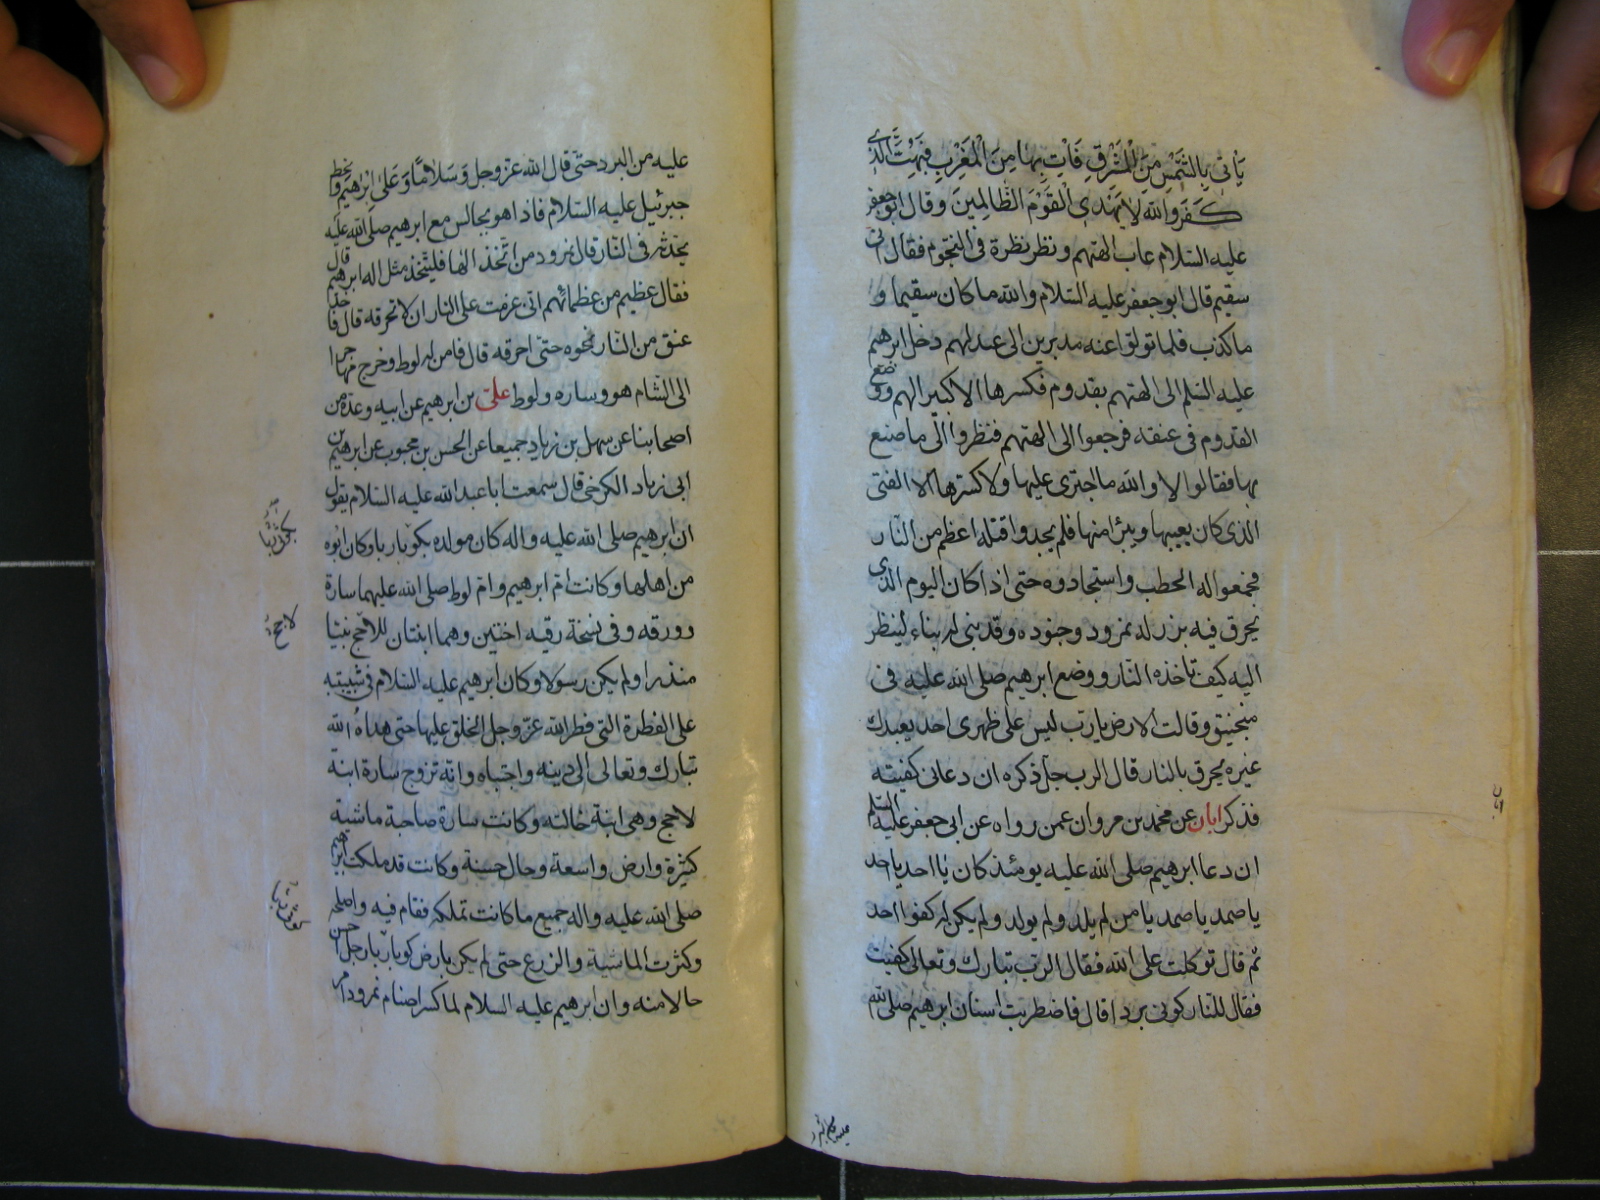 يَأتى بِالشَّمْسِ مِنَ الْمَشْرِقِ فَأتِ بِها مِنَ الْمَغْرِبِ فَبُهِتَ الَّذى
كَفَرَ وَاللّه لايَهْدِى الْقَوْمَ الظّالِمينَ وقال ابوجعفر
عليه السّلام عاب الهتهم ونظر نظرة فى النجّوم فقال انى
سقيم قال ابوجعفر عليه السّلام واللّه ماكان سقيما و
ماكذب فلما تولوا عنه مدبرين الى عيد لهم دخل ابرهيم
عليه السّلم الى الهتهم بقدوم فكسرها الا كبيرا لهم ووضع
القدوم فى عنقه فرجعوا الى الهتهم فنظروا الى ما صنع
بها فقالوا لا واللّه ما اجترى عليها ولا كسرها الا الفتى
الذى كان يعيبها ويبرأ منها فلم يجدوا قتلة اعظم من النّار
فجمعوا له الحطب واستجادوه حتى اذا كان اليوم الذى
يحرق فيه برز له نمرود وجنوده وقد بنى له بناء لينظر
اليه كيف تاخذه النّار ووضع ابرهيم صلى اللّه عليه فى
منجنيق وقالت الارض يارب ليس على ظهرى احد يعبدك
غيره يحرق بالنار قال الرب جلّ ذكره ان دعانى كفيته
فذكر ابان عن محمد بن مروان عمن رواه عن ابى جعفر عليه السّلم
ان دعا ابرهيم صلى اللّه عليه يومئذ كان يا احد يا احد
يا صمد يا صمد يا من لم يلد ولم يولد ولم يكن له كفوا احد
ثم قال توكلت على اللّه فقال الرب تبارك وتعالى كفيت
فقال للنّار كونى بردا قال فاضطربت اسنان ابرهيم صلى اللّه
عليه من البرد
عليه من البرد حتى قال اللّه عزوجل وَسَلامًا وَعَلى اِبْرهيم وانحط
جبرئيل عليه السّلام فاذا هو يجالس مع ابرهيم صلى اللّه عليه
يحدّثه فى النّار قال نمرود من اتّخذ الها فليتّخذ مثل اله ابرهيم قال
فقال عظيم من عظمائهم انى عزمت على النار ان لا تحرقه قال فاخذ
عنق من النّار نحوه حتى احرقه قال فامن له لوط وخرج مهاجرا
الى الشّام هو وساره ولوط علىّ بن ابرهيم عن ابيه وعدة من
اصحابنا عن سهل بن زياد جميعا عن الحسن بن محبوب عن ابرهيم بن
ابى زياد الكرخى قال سمعت ابا عبد اللّه عليه السّلام يقول
ان ابرهيم صلى اللّه عليه واله كان مولده بكوبار با وكان ابوه
من اهلها وكانت ام ابرهيم وام لوط صلى اللّه عليهما سارة
وورقه وفى نسخة رقيه اختين وهما ابنتان للاحج نبيّا
منذرا ولم يكن رسولا وكان ابرهيم عليه السّلام فى شبيبته
على الفطرة التى فطر اللّه عزّوجل الخلق عليها حتى هداه اللّه
تبارك وتعالى الى دينه واجتباه وانه تزوج سارة ابنة
لاحج وهى ابنة خالته وكانت سارة صاحبة ماشية
كثيرة وارض واسعة وحال حسنة وكانت قد ملكت ابرهيم
صلى اللّه عليه واله جميع ما كانت تملكه فقام فيه واصلحه
وكثرت الماشية والزرع حتى لم يكن بارض كوبار با رجل احسن
حالا منه وان ابرهيم عليه السلام لما كسر اصنام نمرود امر
لاحج